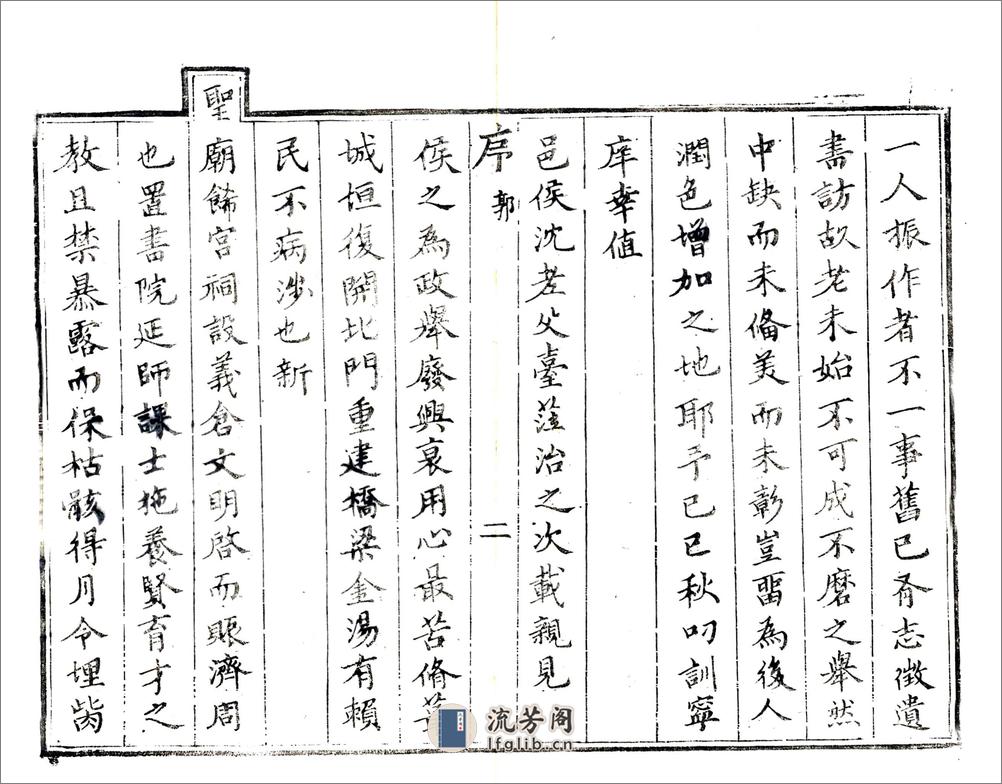 一人振作者不一事舊已有志徵遺
書訪故老未始不可成不磨之舉然
中缺而未俻美而未彰豈畱為後人
潤色增加之地耶予己巳秋叨訓寧
庠幸值
邑侯沈老父臺蒞治之次載親見
序 郭 二
侯之為政舉廢興衰用心最苦脩
城垣復開北門重建橋梁金湯有賴
民不病涉也新
聖廟餙宮祠設義倉文明啓而賑濟周
也置書院延師課士施養賢育才之
教且禁暴露而保枯骸得月令埋胔
流芳阁
lfglib.cn